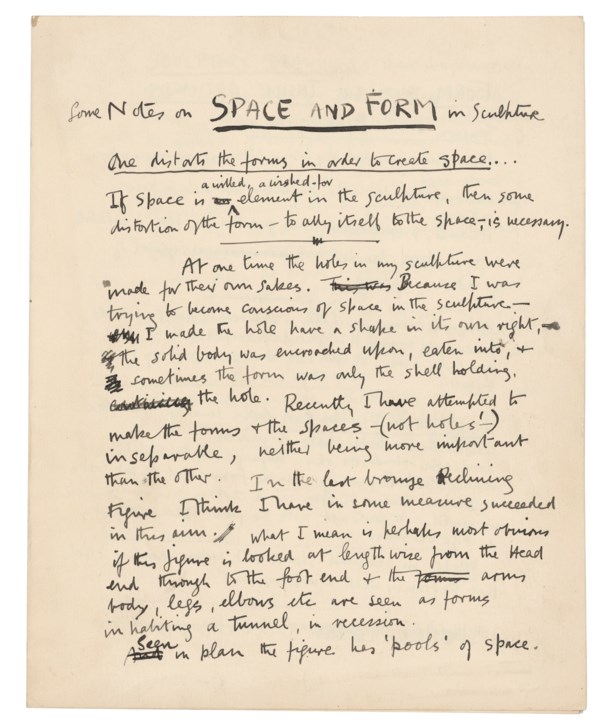 Some Notes on SPACE AND FORM in Sculpture
One distorts the forms in order to create space....
a willed, a wished-for
If space is an element in the sculpture, then some
distortion of the form – to ally itself to the space, – is necessary.
At one time the holes in my sculpture were
made for their own sakes. This was Because I was
trying to become conscious of space in the sculpture –
I made the hole have a shape in its own right, –
the solid body was encroached upon, eaten into, +
sometimes the form was only the shell holding,
containing the hole. Recently I have attempted to
make the forms + the spaces – (not holes! –)
inseparable, neither being more important
than the other. In the last bronze Reclining
Figure I think I have in some measure succeeded
in this aim. What I mean is perhaps most obvious
if this figure is looked at lengthwise from the Head
end through to the foot end + the forms arms
body, legs, elbows etc are seen as forms
inhabiting a tunnel, in recession.
Seen
in plan the figure has 'pools' of space.